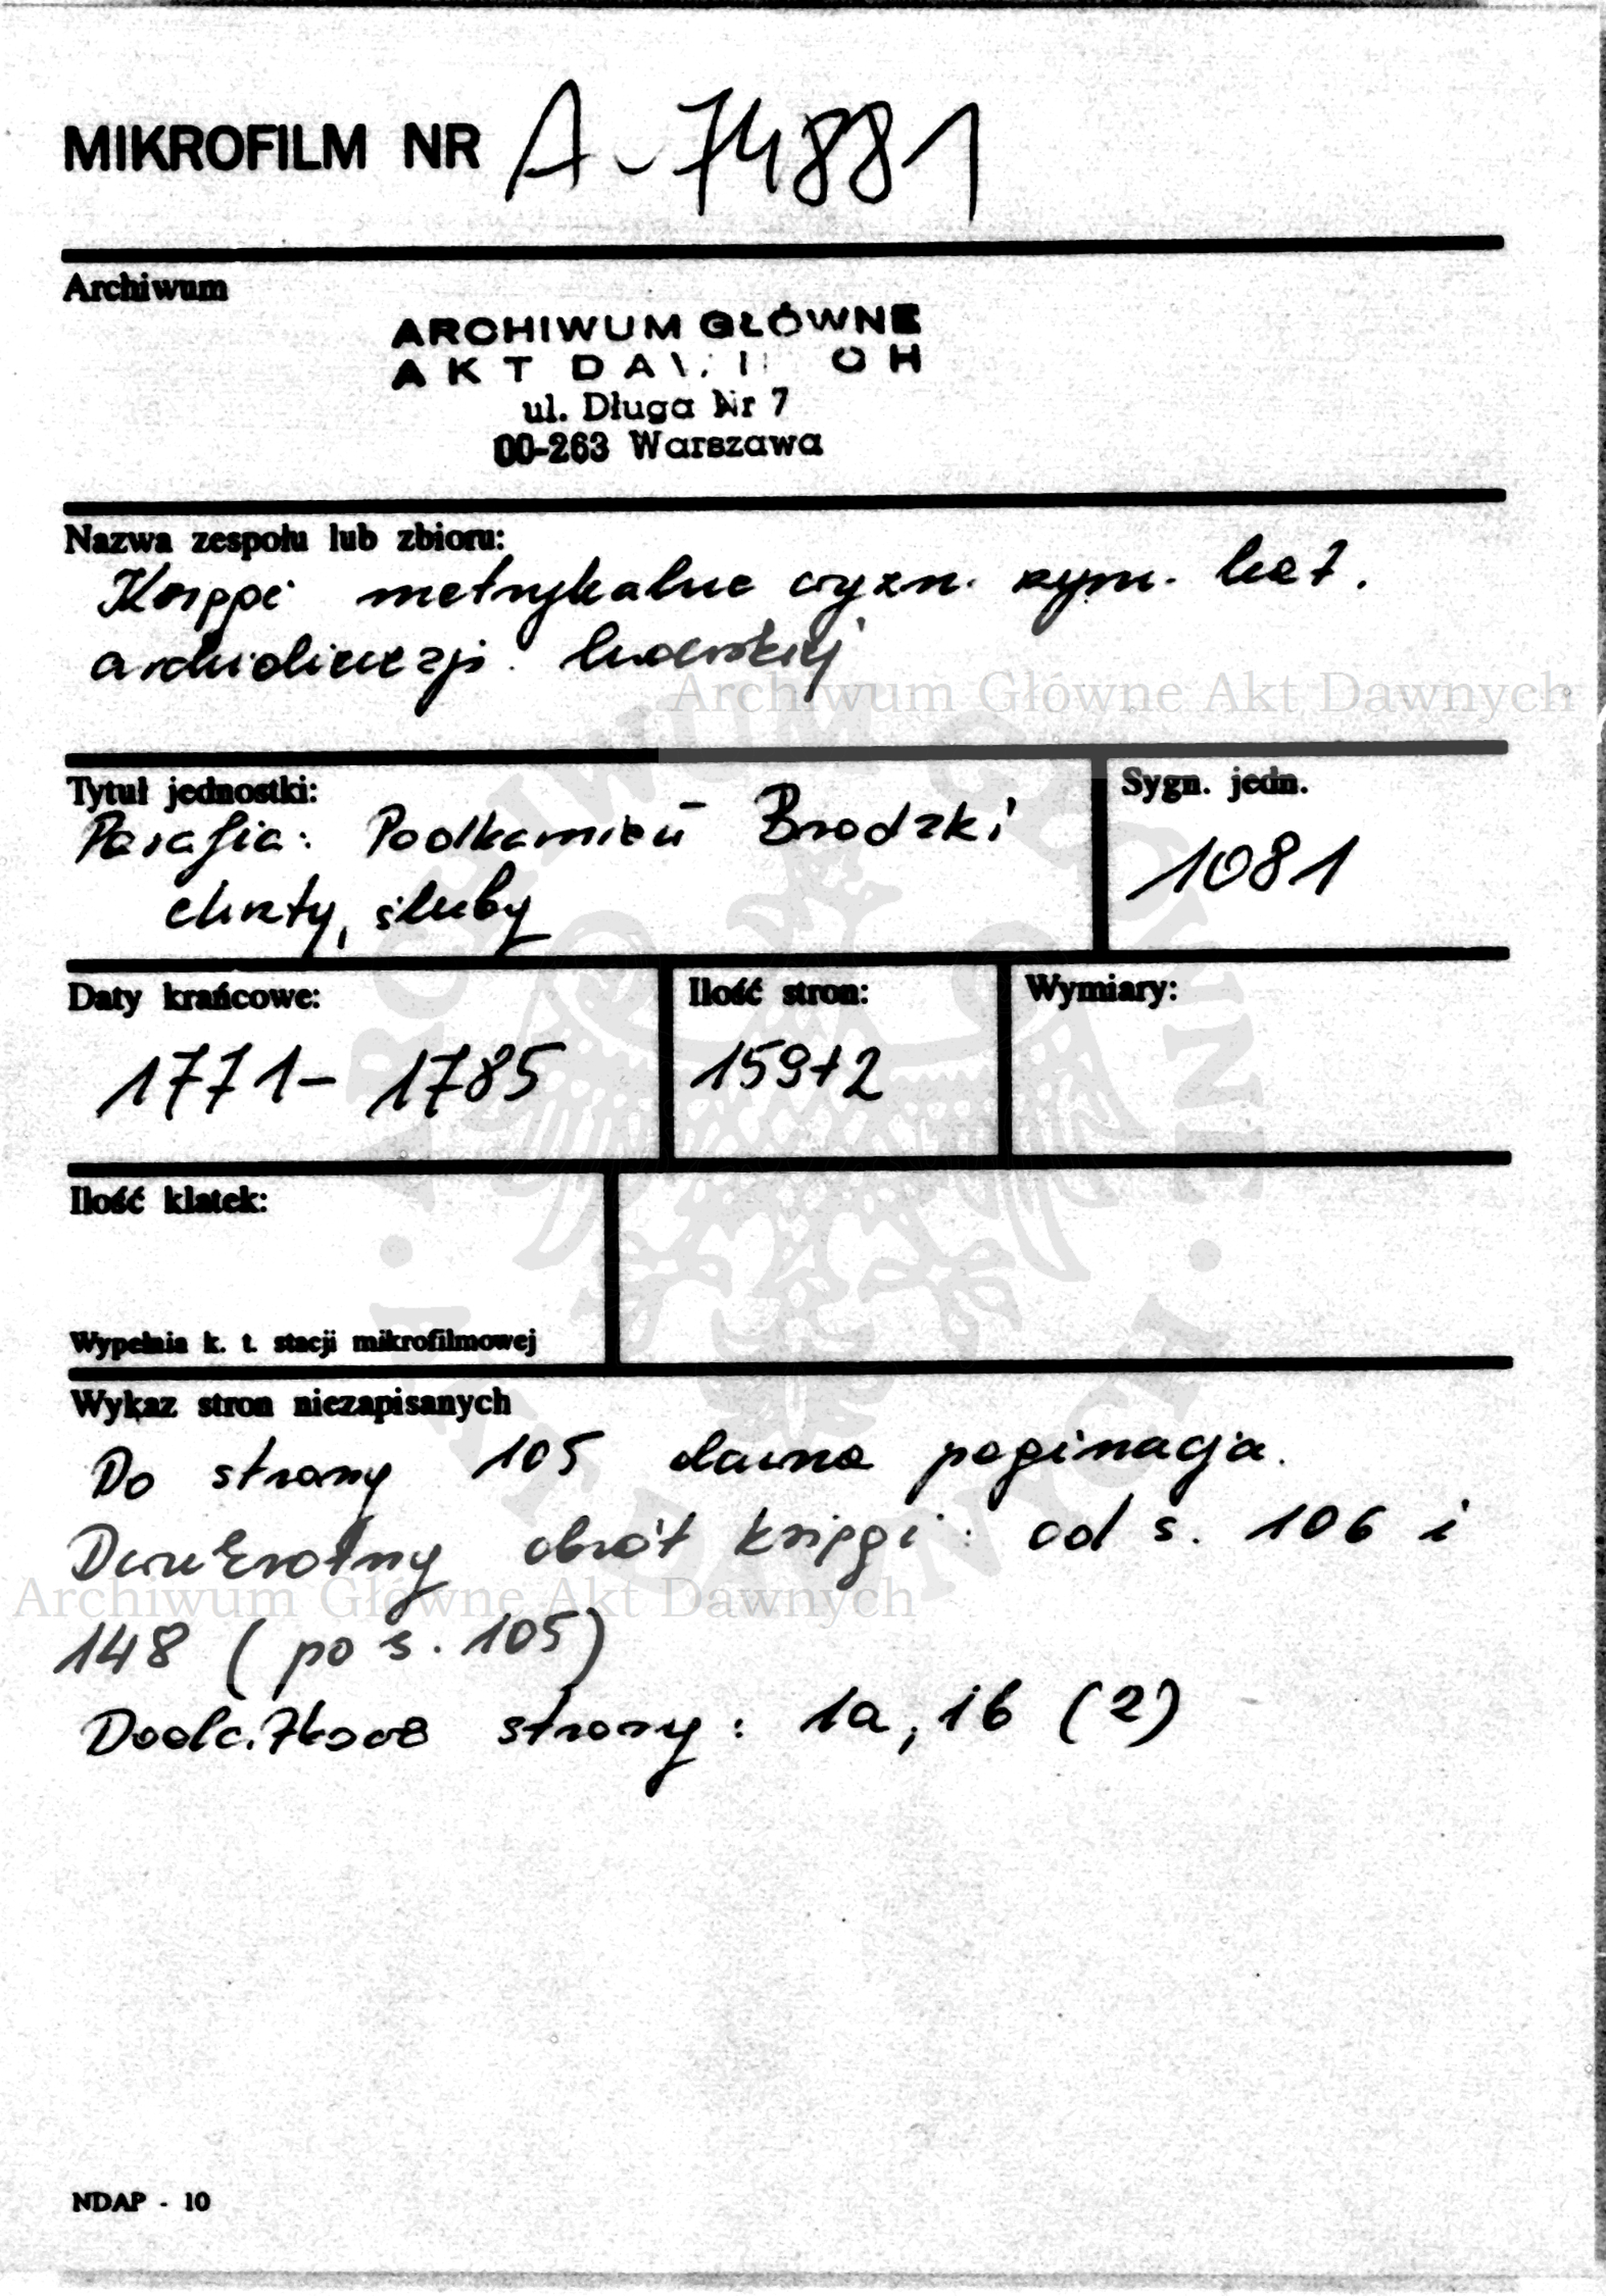 MIKROFILM NR A-74881
Archiwum
ARCHIWUM GŁÓWNE
AKT DAWNYCH
ul. Długa Nr 7
00-263 Warszawa
Nazwa zespołu lub zbioru:
Księgi metrykalne wyzn. rzym. kat.
archidiecezji lwowskiej
Archiwum Główne Akt Dawnych
Tytuł jednostki:
Parafia: Podkamień Brodzki
chrzty, śluby
Sygn. jedn.
1081
Daty krańcowe:
1771- 1785
Ilość stron:
159+2
Wymiary:
Ilość klatek:
Wypełnia k. t. stacji mikrofilmowej
Wykaz stron niezapisanych
Do strony 105 dawna paginacja.
Dwukrotny obrót księgi: od s. 106 i
Archiwum Główne Akt Dawnych
148 (po s. 105)
Dodatkowe strony: 1a, 1b (2)
NDAP - 10
ARCHIWUM GŁÓWNE · AKT DAWNYCH ·